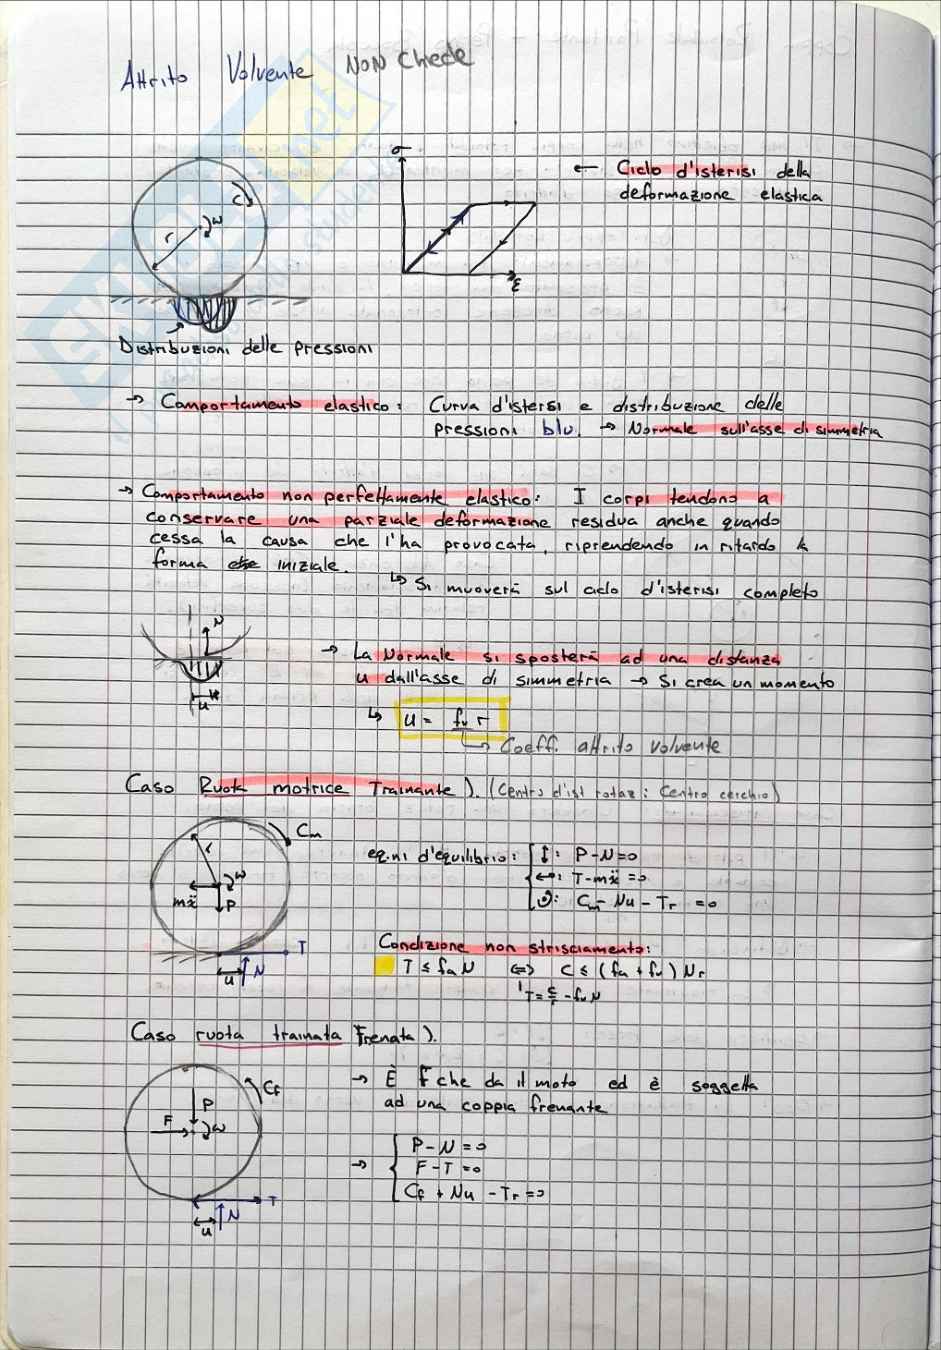 Attrito Volvente NON chiede
σ
← Ciclo d'isterisi della
deformazione elastica
C
ω
r
ε
Distribuzioni delle pressioni
→ Comportamento elastico: Curva d'istersi e distribuzione delle
pressioni blu. → Normale sull'asse di simmetria
→ Comportamento non perfettamente elastico: I corpi tendono a
conservare una parziale deformazione residua anche quando
cessa la causa che l'ha provocata, riprendendo in ritardo la
forma iniziale.
↳ Si muoverà sul ciclo d'isterisi completo
N
u
→ La Normale si sposterà ad una distanza
u dall'asse di simmetria → Si crea un momento
↳ u = fv r
↳ Coeff. attrito volvente
Caso Ruota motrice Trainante). (Centro d'ist rotaz: Centro cerchio)
Cm
r
ω
mẍ
P
T
N
u
eq.ni d'equilibrio: { ↕: P-N=0
↔: T-mẍ=0
↺: Cm - Nu - Tr = 0
Condizione non strisciamento:
T ≤ fa N ⇔ C ≤ (fa + fv) Nr
T = C/r - fv N
Caso ruota trainata Frenata).
Cf
P
F
ω
T
N
u
→ È F che da il moto ed è soggetta
ad una coppia frenante
→ { P-N=0
F-T=0
Cf + Nu - Tr=0